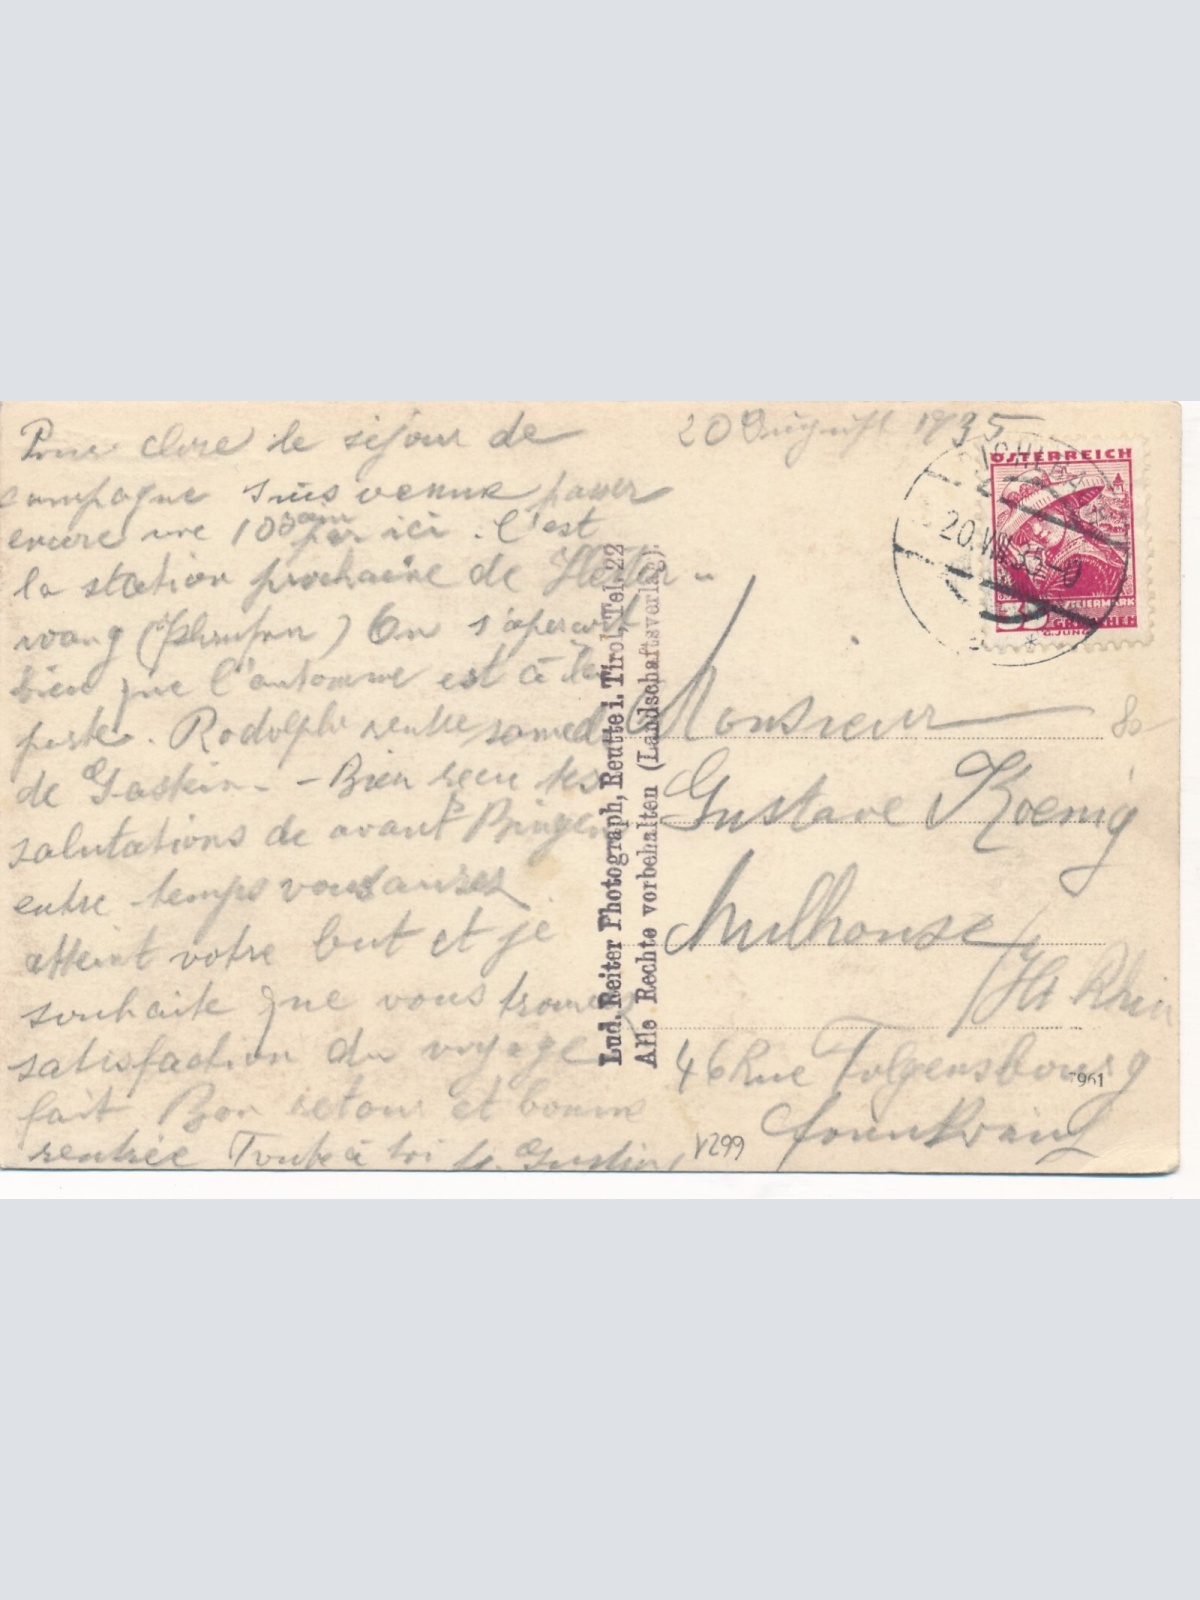 20 August 1935
Pour clore le séjour de
campagne suis venue passer
encore une 10aine par ici. C'est
la station prochaine de Hetter-
wang On s'aperçoit
bien que l'automne est à la
porte. Rodolphe rentre samedi
de Gastein. - Bien reçu tes
salutations de avant Bingen
entre temps vous aurez
atteint votre but et je
souhaite que vous trouvez
satisfaction du voyage
fait Bon retour et bonne
rentrée Toute à toi
Lud. Reiter Photograph, Reutte i. Tirol, Tel. 22
Alle Rechte vorbehalten (Landschaftsverlag).
ÖSTERREICH
STEIERMARK
GROSCHEN
20.VIII.35
Monsieur
Gustave Koenig
Mulhouse
Ht Rhin
46 Rue Folgensbourg
7961
V299
80